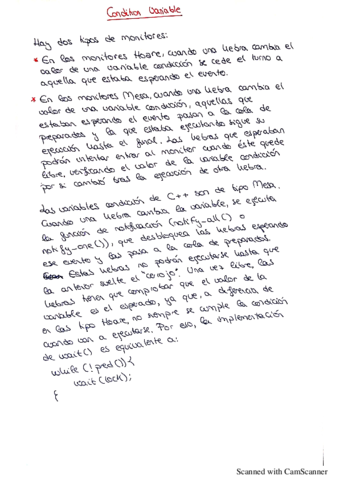 Condition Variable
Hay dos tipos de monitores:
* En los monitores Hoare, cuando una hebra cambia el
valor de una variable condición se cede el turno a
aquella que estaba esperando el evento.
* En los monitores Mesa, cuando una hebra cambia el
valor de una variable condición, aquellas que
estaban esperando el evento pasan a la cola de
preparados y la que estaba ejecutando sigue su
ejecución hasta el final. Las hebras que esperaban
podrán intentar entrar al monitor cuando éste quede
libre, verificando el valor de la variable condición
por si cambió tras la ejecución de otra hebra.
Las variables condición de C++ son de tipo Mesa.
Cuando una hebra cambia la variable, se ejecuta
la función de notificación (notify_all() o
notify_one()), que desbloquea las hebras esperando
ese evento y las pasa a la cola de preparados.
Estas hebras no podrán ejecutarse hasta que
la anterior suelte el "cerrojo". Una vez libre, las
hebras tienen que comprobar que el valor de la
variable es el esperado, ya que, a diferencia de
en las tipo Hoare, no siempre se cumple la condición
cuando van a ejecutarse. Por eso, la implementación
de wait() es equivalente a:
while (!pred()){
wait (lock);
{
Scanned with CamScanner